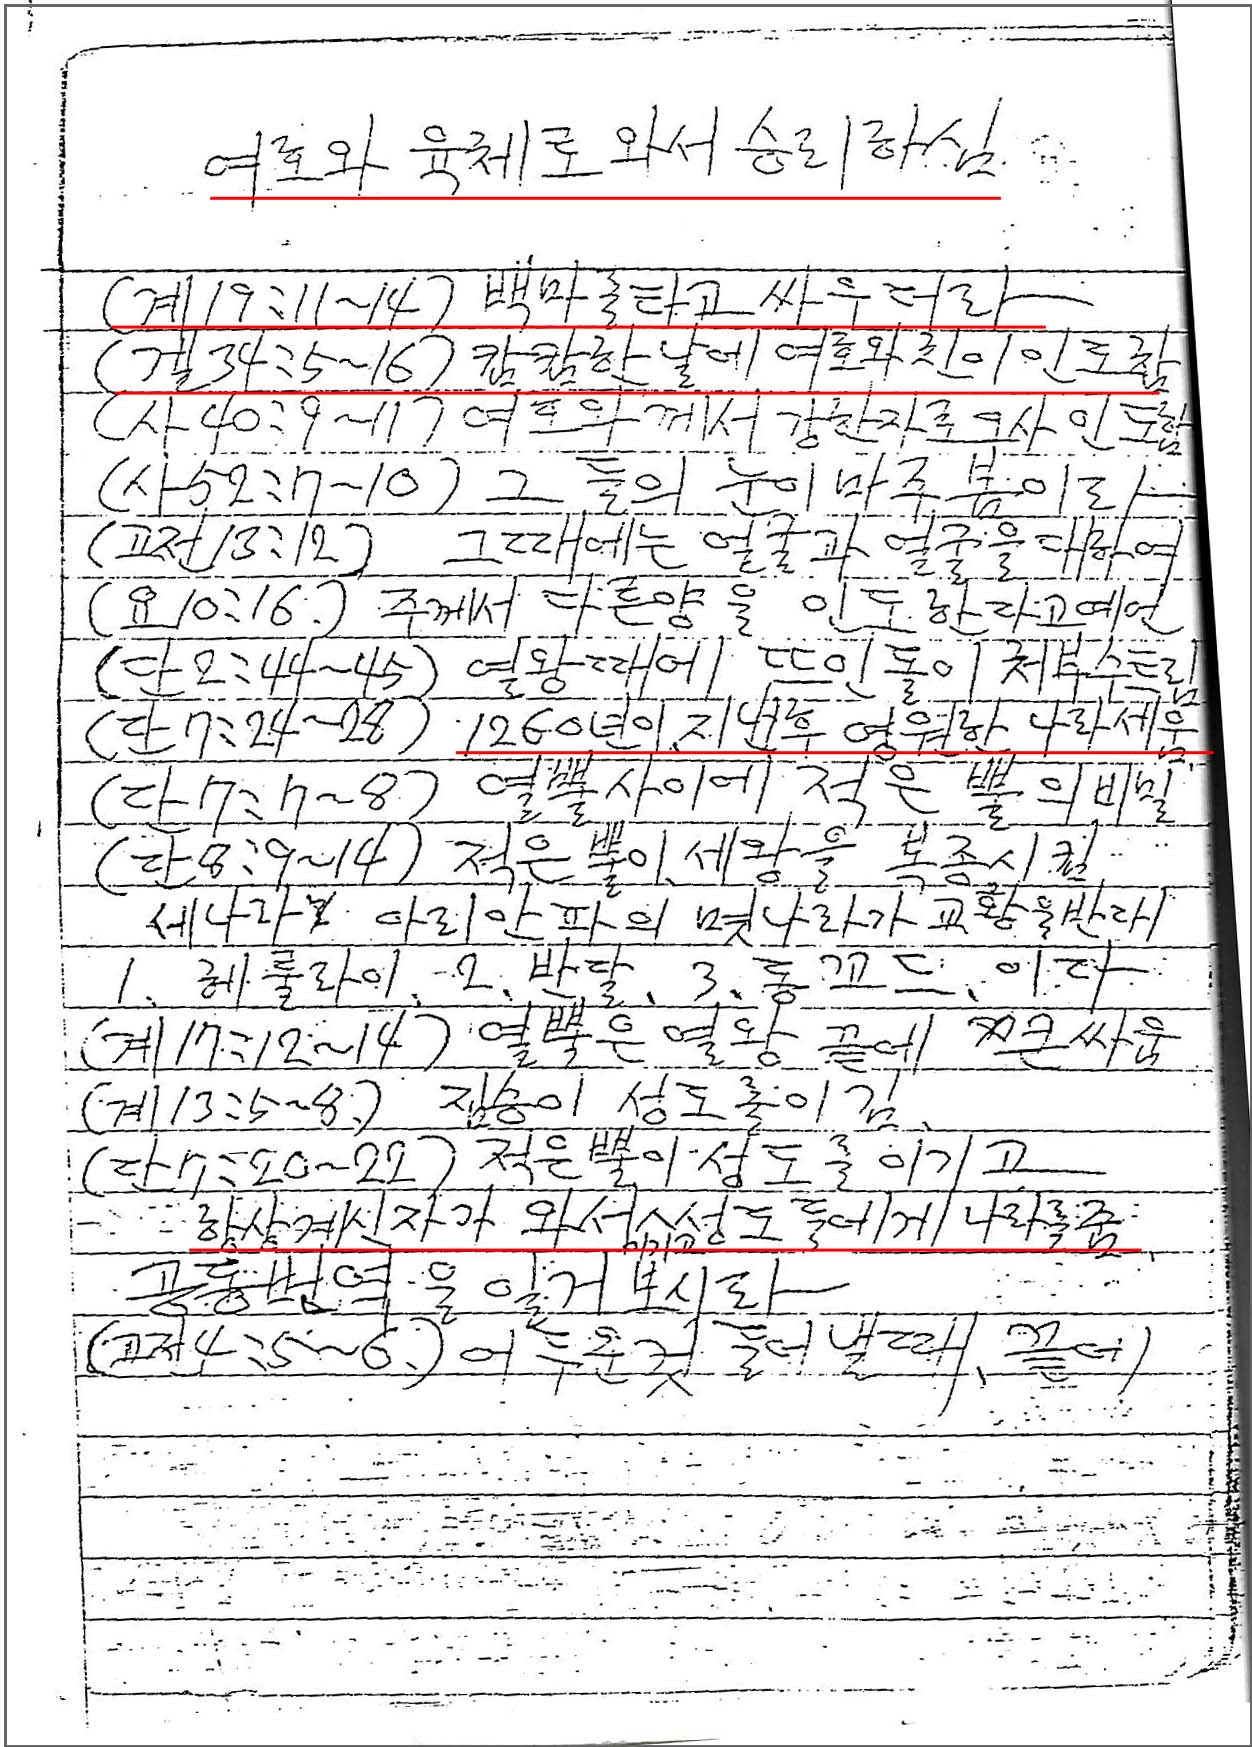 여호와 육체로 와서 승리하심
(계19:11~14) 백마를타고 싸우더라
(겔34:5~16) 캄캄한 날에 여호와 친이 인도함
(사40:9~17 여호와께서 강한자로 오사 인도함
(사52:7~10) 그들의 눈이 마주 봄이라
(고전13:12) 그때에는 얼굴과 얼굴을 대하여
(요10:16.) 주께서 다른양을 인도한다고예언
(단2:44~45) 열왕때에 뜨인돌이 처부수트림
(단7:24~28) 1260년이 지낸후 영원한 나라세움
(단7:7~8) 열뿔사이에 적은 뿔의비밀
(단8:9~14) 적은뿔이 세왕을 복종시킴
세나라 아리안파의 몇나라가 교황을반대
1. 헤룰라이, 2. 반달, 3. 동꼬드, 이다
(계17:12~14) 열뿔은 열왕 끝에 큰싸움
(계13:5~8.) 짐승이 성도를이김,
(단7:20~22) 적은뿔이 성도를 이기고
항상계신자가 와서 이기고 성도들에게 나라를줌
공동번역을 일거보시라
(고전4:5~6.) 어두운것 들어낼때, 끝에